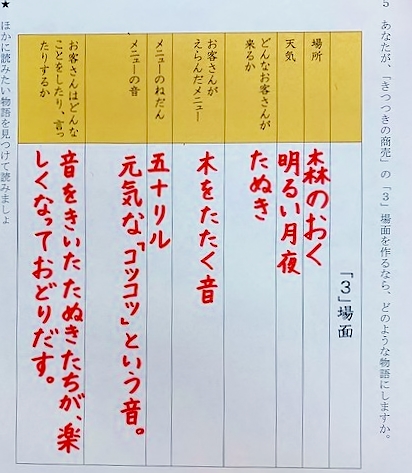 5 あなたが、「きつつきの商売」の「3」場面を作るなら、どのような物語にしますか。
「3」場面
場所
森のおく
天気
明るい月夜
どんなお客さんが
来るか
たぬき
お客さんが
えらんだメニュー
木をたたく音
メニューのねだん
五十リル
メニューの音
元気な「コッコッ」という音。
お客さんはどんな
ことをしたり、言っ
たりするか
音をきいたたぬきたちが、楽
しくなっておどりだす。
★ ほかに読みたい物語を見つけて読みましょ